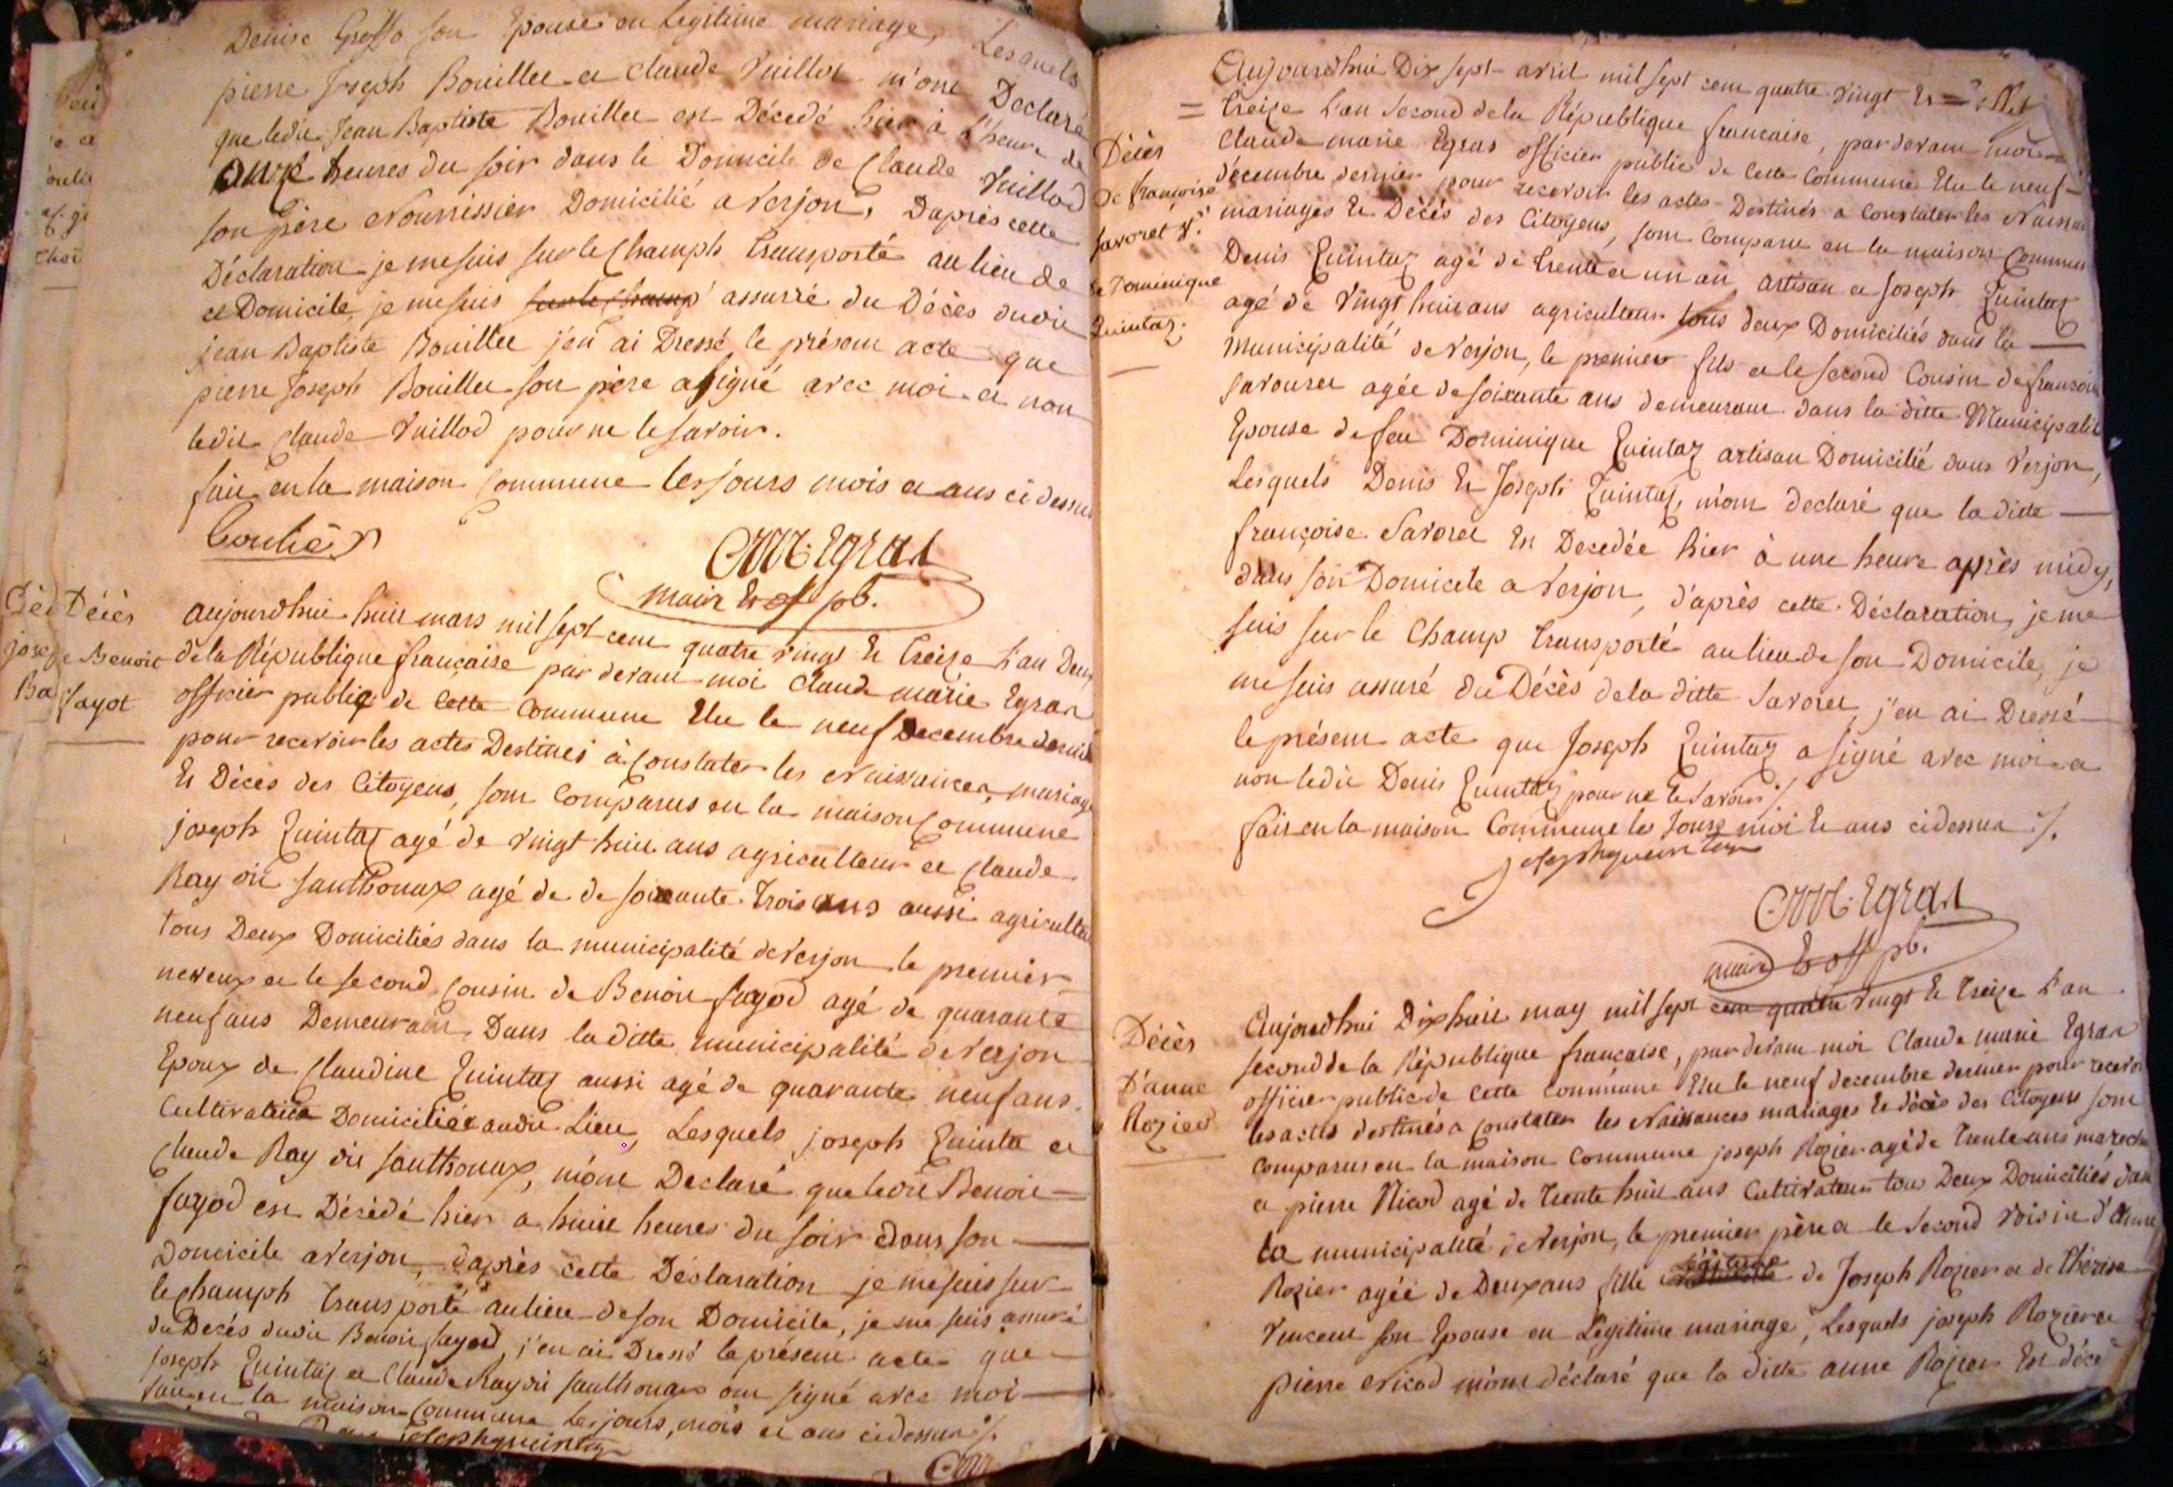 Denise Groffo son Epouse en Legitime mariage, Lesquels
pierre Joseph Bouillet et Claude Vuillot m'ont Declaré
que ledit Jean Baptiste Bouillet est Décedé hier à l'heure de
onze heures du soir dans le Domicile de Claude Vuillod
son père Nourrissier Domicilié a Verjon, Daprès cette
Déclaration je me suis sur le Champh transporté au lieu de
ce Domicile, je me suis sur le champ assurré du Décès dudit
jean Baptiste Bouillet j'en ai Dressé le présent acte que
pierre Joseph Bouillet son père a signé avec moi et non
ledit Claude Vuillod pour ne le savoir.
fait en la maison Commune les jours mois et ans ci dessus
CM. Egraz
maire Et off pb.
Décès
de Benoit
fayot
aujourdhui huit mars mil sept cent quatre vingt Et treize L'an Deux
de la République française par devant moi Claude marie Egraz
officier public de cette Commune Elu le neuf Decembre dernier
pour recevoir les actes Destinés à Constater les Naissances, mariages
Et Décès des Citoyens, sont Comparus en la maison Commune
joseph Quintaz agé de vingt huit ans agriculteur et Claude
Ray dit Santhonax agé de de soixante trois ans aussi agriculteur
tous Deux Domiciliés dans la municipalité de Verjon le premier
neveux et le second Cousin de Benoit fayod agé de quarante
neuf ans Demeurant Dans la ditte municipalité de Verjon
Epoux de Claudine Quintaz aussi agé de quarante neuf ans
Cultivatrice Domiciliée audit Lieu, Lesquels joseph Quinta et
Claude Ray dit Santhonax, m'ont Declaré que ledit Benoit
fayod est Décédé hier a huit heures du soir dans son
Domicile a Verjon, d'après cette Déclaration je me suis sur
le champh transporté au lieu de son Domicile, je me suis assuré
du Decès dudit Benoit fayod, j'en ai Dressé le présent acte que
joseph Quintaz et Claude Ray dit Santhonax ont signé avec moi
fait en la maison Commune les jours, mois et ans ci dessus ./.
josephquintaz
Aujourdhui Dix sept avril mil sept cent quatre vingt Et
treize L'an Second de la République francaise, par devant moi
Claude marie Egraz officier public de cette Commune Elu le neuf
décembre dernier pour recevoir les actes Destinés a Constater les Naissances
mariages Et Décès des Citoyens, sont Comparu en la maison Commune
Décès
de françoise
Savoret Ve.
de Dominique
Quintaz.
Denis Quintaz agé de trente et un an artisan et Joseph Quintaz
agé de vingt huit ans agriculteur tous deux Domiciliés dans la
Municipalité de Verjon, le premier fils et le second Cousin de françoise
Savouret agée de soixante ans demeurant dans la ditte Municipalité
Epouse de feu Dominique Quintaz artisan Domicilié dans Verjon,
Lesquels Denis Et Joseph Quintaz, m'ont declaré que la ditte
françoise Savoret Est Decedée hier à une heure après midy,
dans son Domicile a Verjon, d'après cette Déclaration, je me
suis sur le Champ transporté au lieu de son Domicile, je
me suis assuré du Décès de la ditte Savoret, j'en ai Dressé
le présent acte que Joseph Quintaz a signé avec moi et
non ledit Denis Quintaz pour ne le Savoir ./.
fait en la maison Commune les Jours moi Et ans ci dessus ./.
josephquintaz
CM. Egraz
maire Et off pb.
Décès
D'anne
Rozier
Aujourdhui Dix huit may mil sept cent quatre vingt Et treize L'an
second de la République francaise, par devant moi Claude marie Egraz
officier public de cette Commune Elu le neuf decembre dernier pour recevoir
les actes destinés a Constater les Naissances mariages Et décès des Citoyens sont
Comparus en la maison Commune joseph Rozier agé de trente ans
et pierre Nicod agé de trente huit ans Cultivateur tous Deux Domiciliés dans
la municipalité de Verjon, le premier père et le second voisin d'Anne
Rozier agée de Deux ans fille légitime de Joseph Rozier et de Thérèse
Vincent son Epouse en Légitime mariage, Lesquels joseph Rozier et
pierre Nicod m'ont déclaré que la ditte anne Rozier Est décé